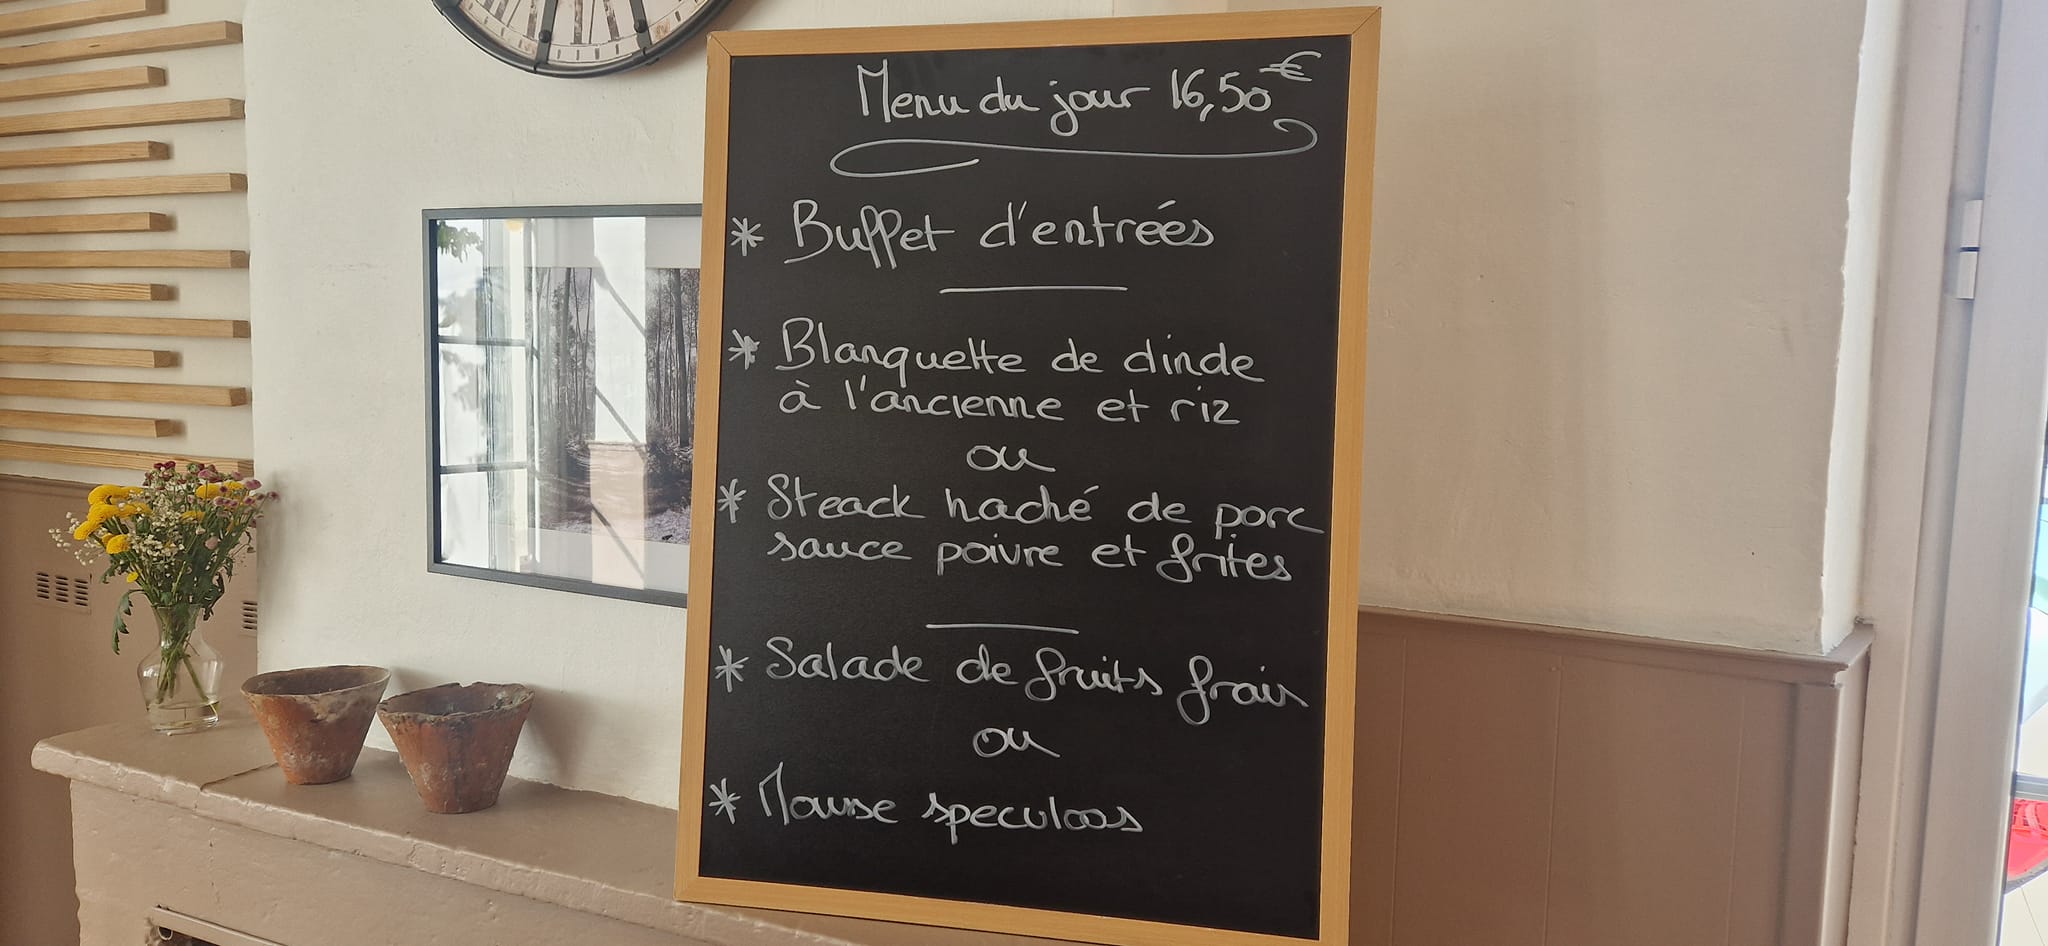 Menu du jour 16,50€
* Buffet d'entrées
* Blanquette de dinde
à l'ancienne et riz
ou
* Steack haché de porc
sauce poivre et frites
* Salade de fruits frais
ou
* Mousse speculoos